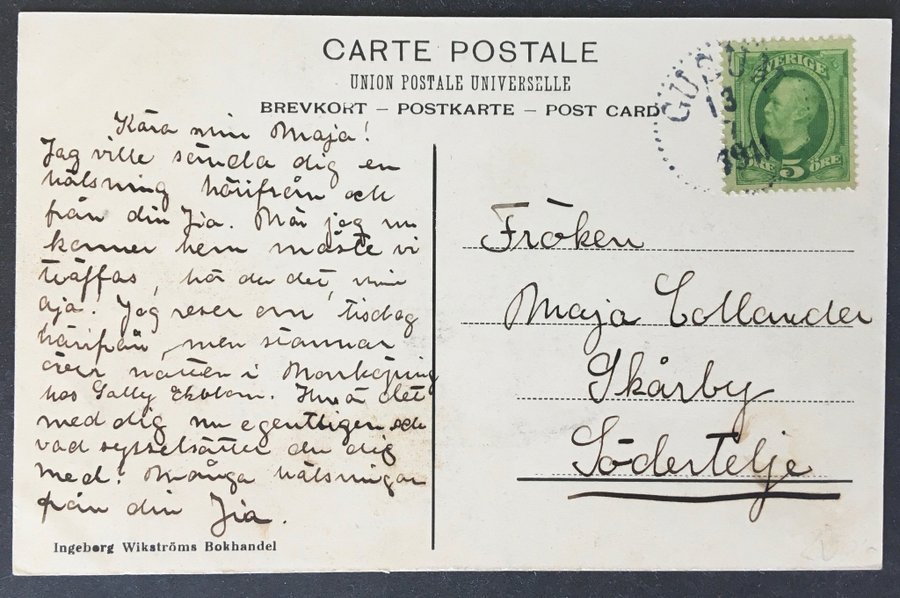 CARTE POSTALE
UNION POSTALE UNIVERSELLE
BREVKORT – POSTKARTE – POST CARD
Kära min Maja!
Jag ville sända dig en
hälsning härifrån och
från din Jia. När jag nu
kommer hem måste vi
träffas, hör du det, min
aja! Jag reser om tisdag
härifrån, men stannar
över natten i Norrköping
hos Gally Ekblom. Hur är det
med dig nu egentligen och
vad sysselsätter du dig
med? Många hälsningar
från din Jia.
Ingeborg Wikströms Bokhandel
SVERIGE
5 ÖRE
13
7
Fröken
Maja Collander
Skårby
Södertelje